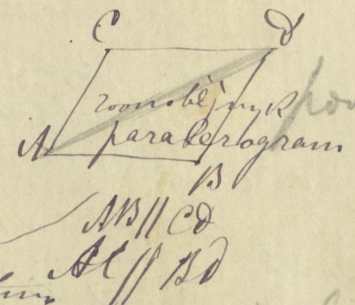 C d
roonobĕjnyk
A paralerogram
B
AB || Cd
AC || Bd